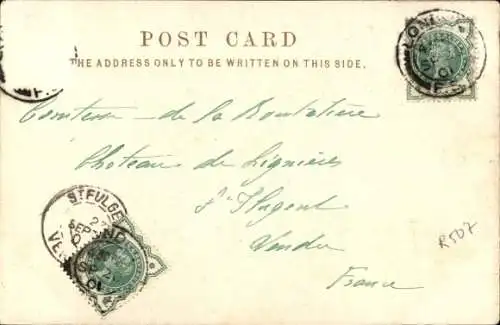 POST CARD
THE ADDRESS ONLY TO BE WRITTEN ON THIS SIDE.
LON
01
Comtesse de la Boutetière
Chateau de Lignières
St Flugent
Vendée
France
ST FULGE
27
SEP
VEND
01
R507